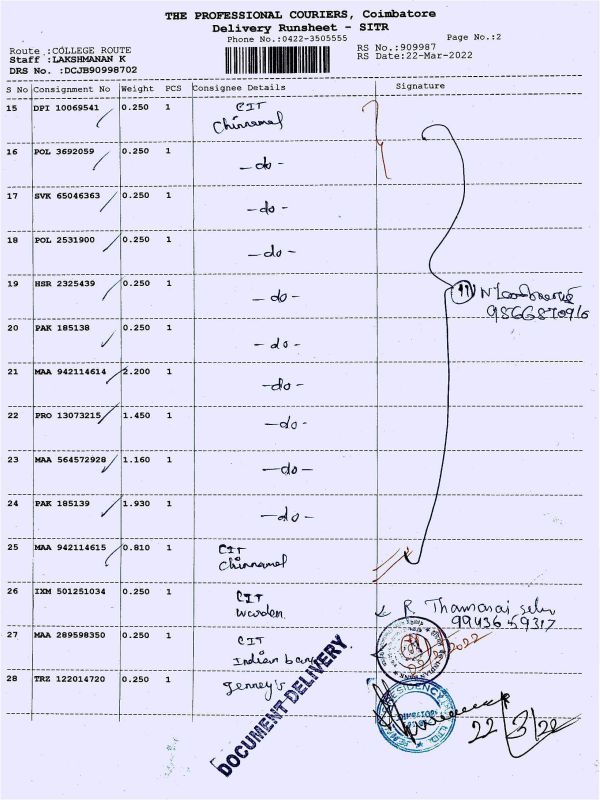 THE PROFESSIONAL COURIERS, Coimbatore
Delivery Runsheet - SITR
Phone No.:0422-3505555
Page No.:2
Route :COLLEGE ROUTE
RS No.:909987
Staff :LAKSHMANAN K
RS Date:22-Mar-2022
DRS No. :DCJB90998702
S No Consignment No Weight PCS Consignee Details Signature
15 DPI 10069541 0.250 1 CIT
Chinnamal
16 POL 3692059 0.250 1 -do-
17 SVK 65046363 0.250 1 -do-
18 POL 2531900 0.250 1 -do-
19 HSR 2325439 0.250 1 -do-
11
9566870916
20 PAK 185138 0.250 1 -do-
21 MAA 942114614 2.200 1 -do-
22 PRO 13073215 1.450 1 -do-
23 MAA 564572928 1.160 1 -do-
24 PAK 185139 1.930 1 -do-
25 MAA 942114615 0.810 1 CIT
Chinnamal
26 IXM 501251034 0.250 1 CIT
Warden
R. Thamarai selvi
9943659317
27 MAA 289598350 0.250 1 CIT
Indian bank
28 TRZ 122014720 0.250 1 Jenney's
DOCUMENT DELIVERY
RESIDENCY
22/3/22